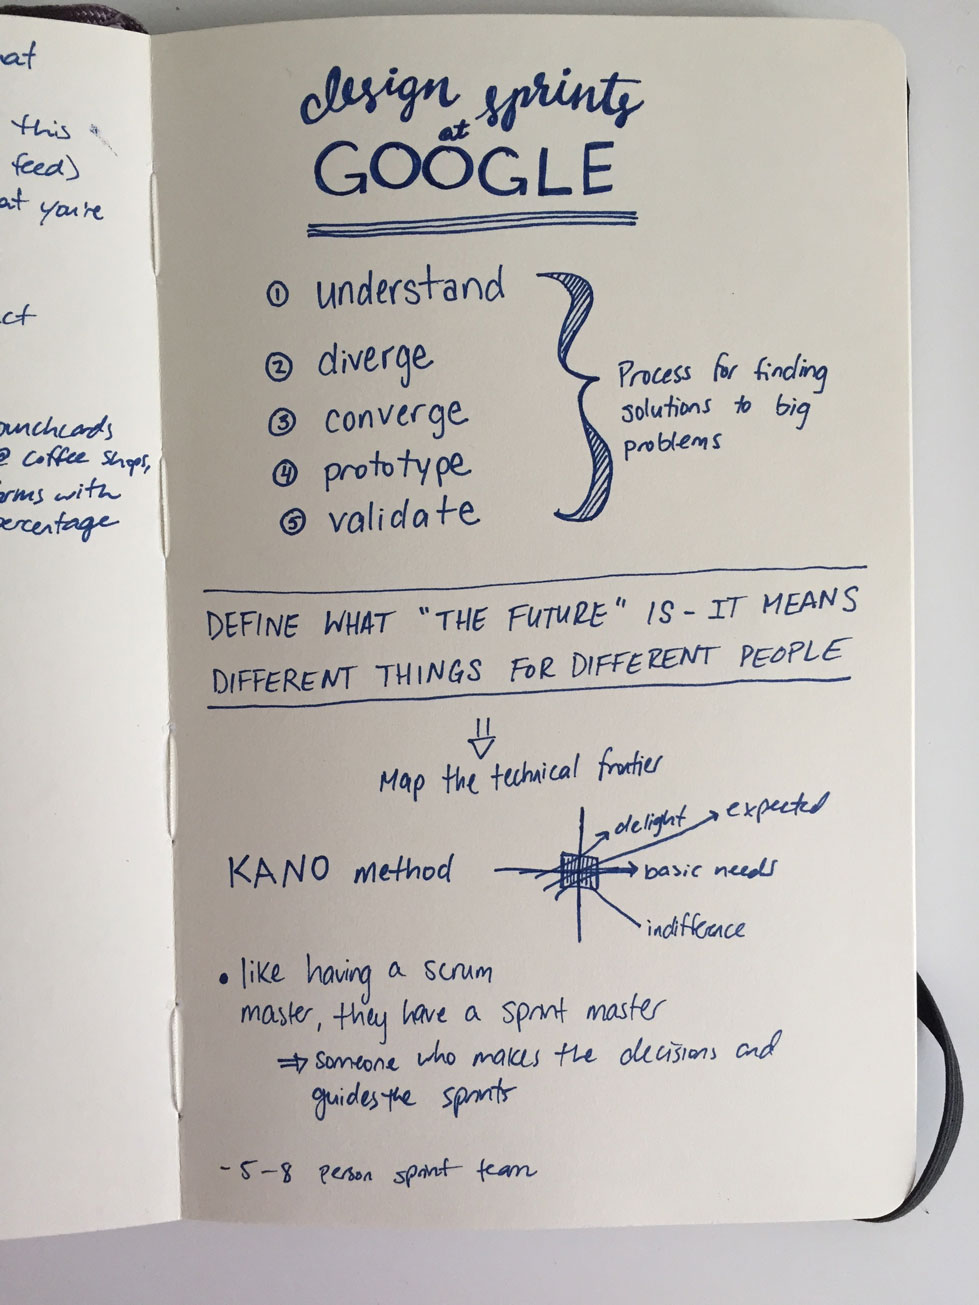 at
this
feed)
at you're
ct
punchcards
@ coffee shops,
orms with
percentage
design sprints
at
GOOGLE
① understand
② diverge
③ converge
④ prototype
⑤ validate
Process for finding
solutions to big
problems
DEFINE WHAT "THE FUTURE" IS - IT MEANS
DIFFERENT THINGS FOR DIFFERENT PEOPLE
⇓
Map the technical frontier
KANO method
delight
expected
basic needs
indifference
• like having a scrum
master, they have a sprint master
⇒ someone who makes the decisions and
guides the sprints
- 5-8 person sprint team